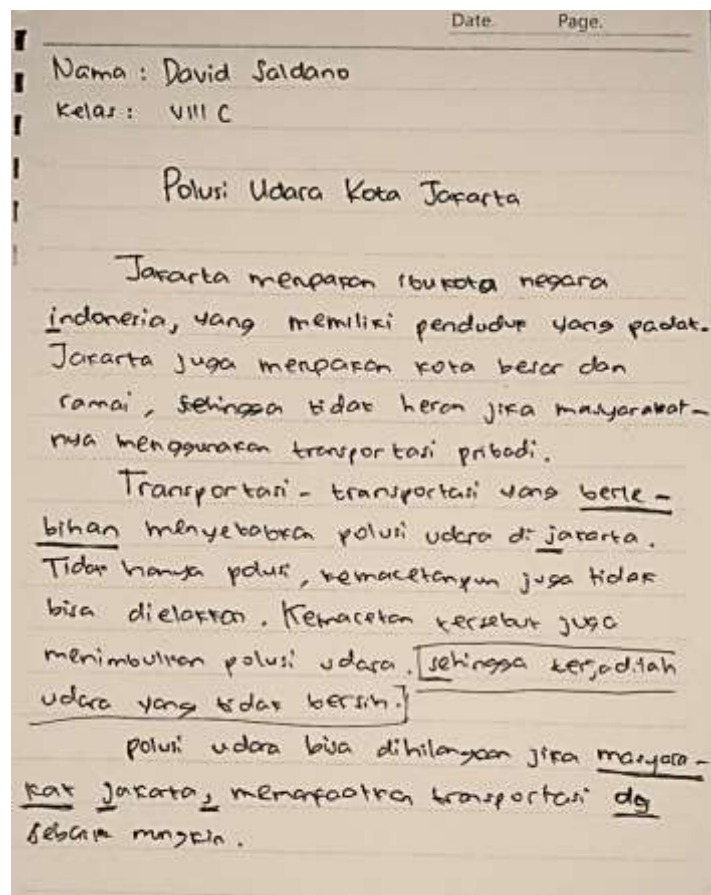 Date. Page.
Nama : David Saldano
Kelas : VIII C
Polusi Udara Kota Jakarta
Jakarta merupakan ibukota negara
indonesia, yang memiliki penduduk yang padat.
Jakarta juga merupakan kota besar dan
ramai, sehingga tidak heran jika masyarakat-
nya menggunakan transportasi pribadi.
Transportasi - transportasi yang berle-
bihan menyebabkan polusi udara di jakarta.
Tidak hanya polusi, kemacetanpun juga tidak
bisa dielakkan. Kemacetan tersebut juga
menimbulkan polusi udara. sehingga terjadilah
udara yang tidak bersih.
polusi udara bisa dihilangkan jika masyara-
kat Jakarta, memanfaatkan transportasi dg
sebaik mungkin.